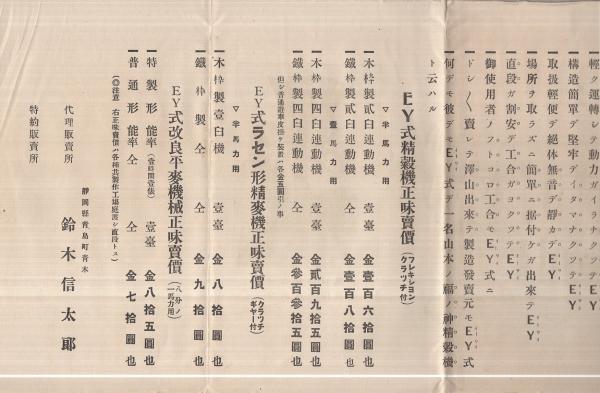 輕ク運轉シテ動力ガイラナクツテEY
構造簡單デ堅牢デイタマナクツテEY
取扱輕便デ絕体無音デ靜カデEY
場所ヲ取ラズニ簡單ニ据付ケガ出來テEY
直段ガ割安デ工合ガヨクツテEY
御使用者ノフトコロ工合モEY式ニ
ドシ〱ヾテ澤山出來テ製造發賣元モEY式
何デモ彼デモEY式デ一名山本ノ福ノ神精穀機
ト云ハル
EY式精穀機正味賣價(フレキション クラッチ付)
▽半馬力用
木枠製貳臼連動機 壹臺 金壹百六拾圓也
鐵枠製貳臼連動機 仝 金壹百八拾圓也
▽壹馬力用
木枠製四臼連動機 壹臺 金貳百九拾五圓也
鐵枠製四臼連動機 仝 金參百參拾五圓也
但シ普通調車皮掛ケ裝置ハ各金五圓引ノ事
EY式ラセン形精麥機正味賣價(クラッチ ギヤー付)
▽半馬力用
木枠製壹臼機 壹臺 金八拾圓也
鐵枠製 仝 仝 金九拾圓也
EY式改良平麥機械正味賣價(八分ノ一馬力用)
特製形能率(壹時間壹俵) 壹臺 金八拾五圓也
普通形能率 仝 仝 金七拾圓也
(◎注意 右正味賣價ハ各種共製作工場庭渡シ直段トス)
代理販賣所 靜岡縣靑島町靑木
特約販賣所 鈴木信太郞